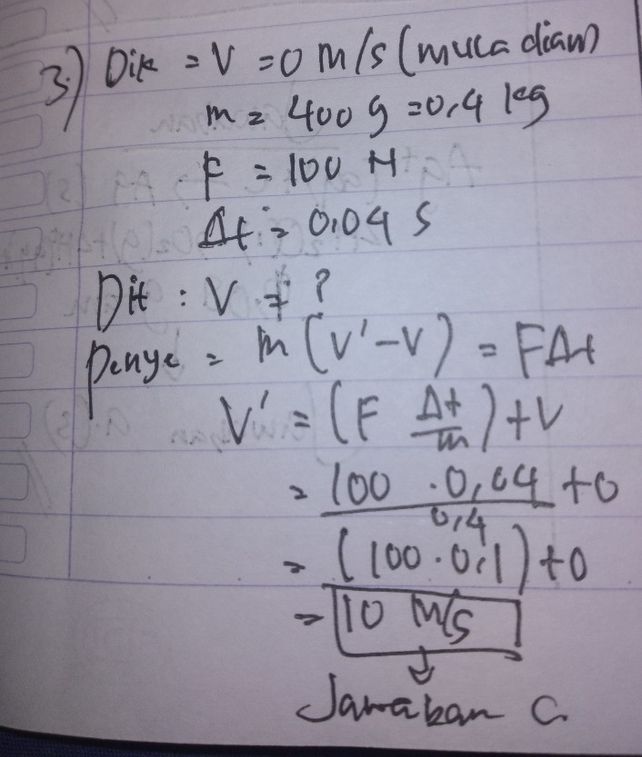 3.) Dik = V = 0 m/s (mula diam)
m = 400 g = 0,4 kg
F = 100 N
Δt = 0.04 s
Dit : V ≠ ?
Penye = m (V' - V) = FΔt
V' = (F Δt/m) + V
= 100 . 0,04 / 0,4 + 0
= (100 . 0,1) + 0
= 10 m/s
Jawaban C.